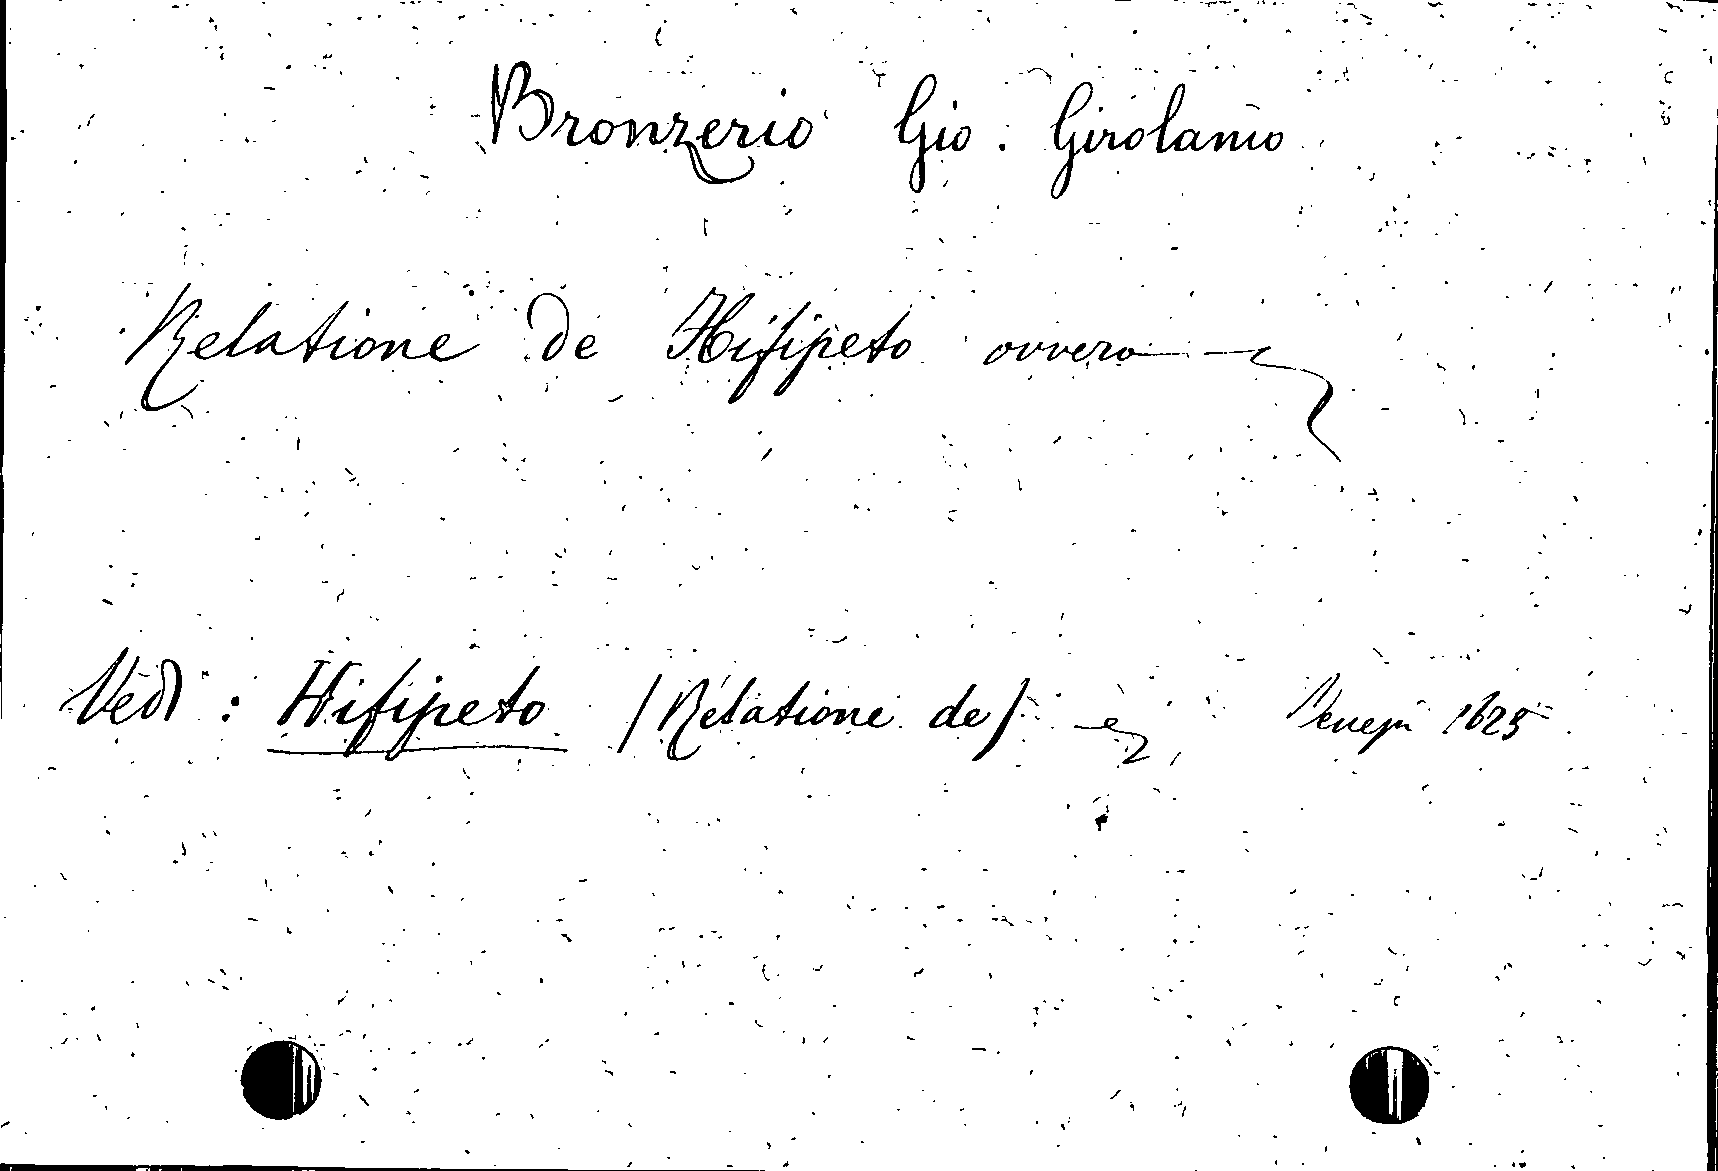 Bronzerio Gio. Girolamo
Relatione de Hifipeto ovvero
Vedi: Hifipeto (Relatione de) Venezia 1625